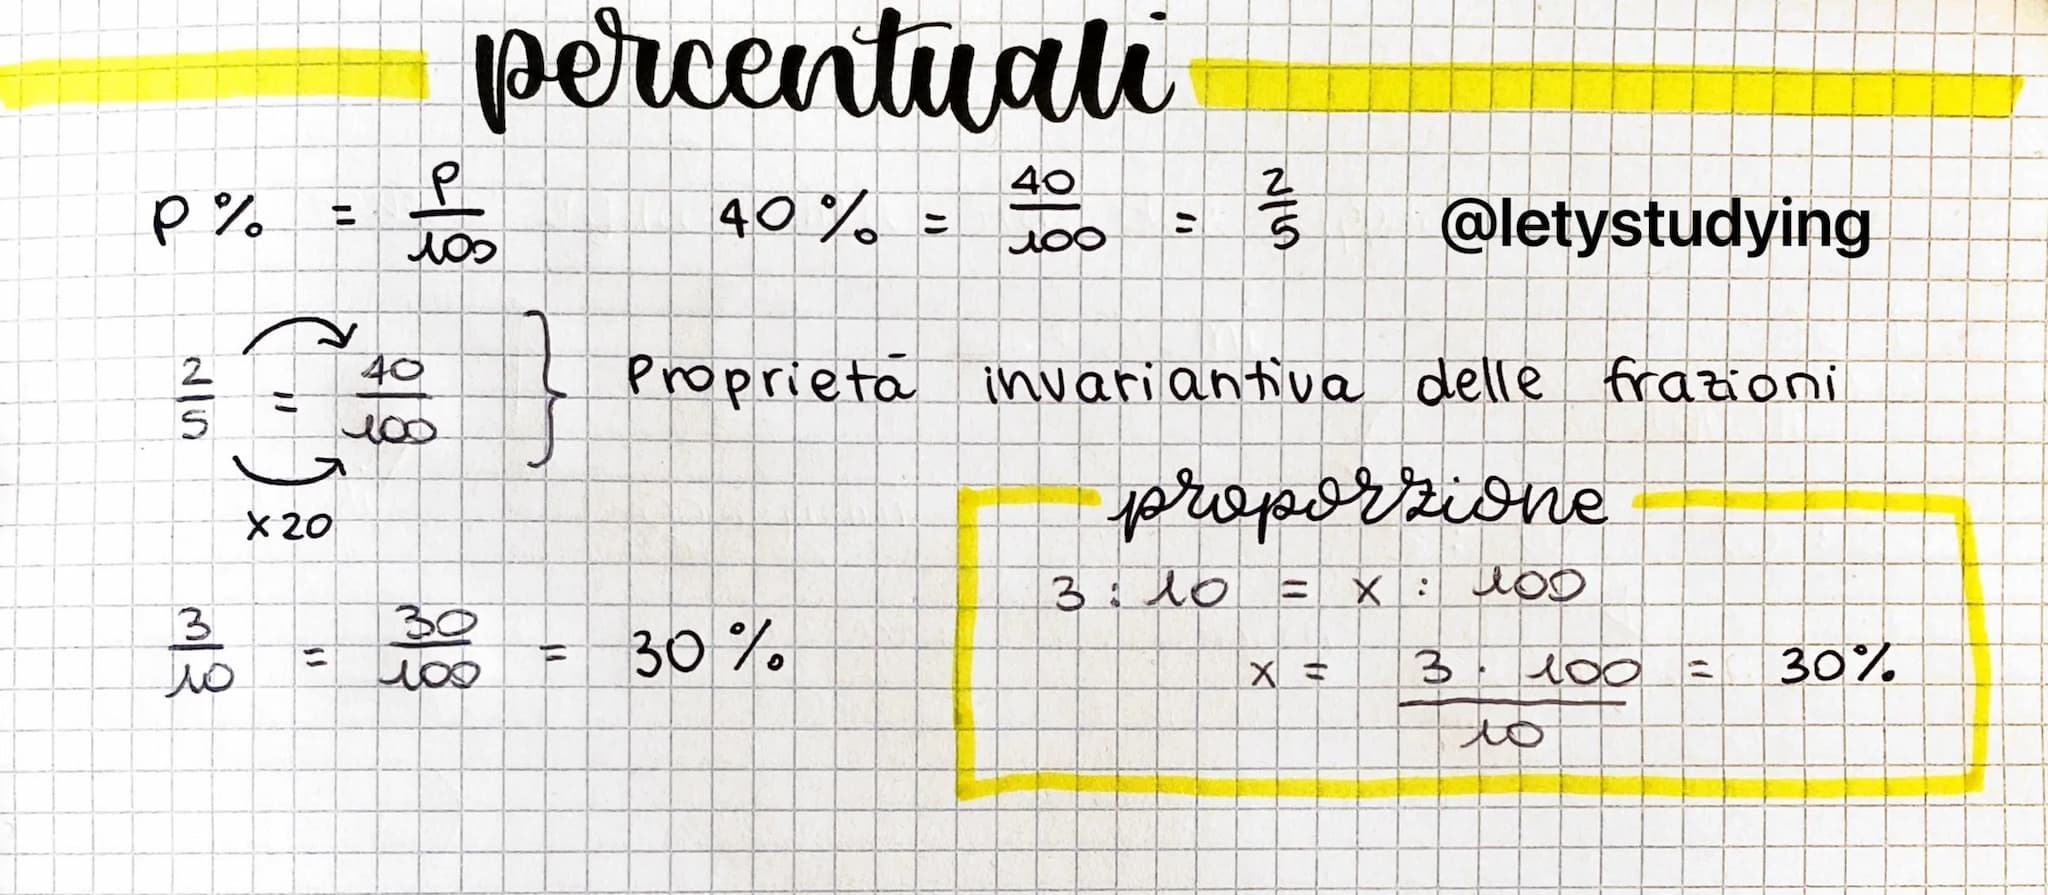 percentuali
p% = p/100 40% = 40/100 = 2/5 @letystudying
2/5 = 40/100 } Proprietā invariantiva delle frazioni
x20
proporzione
3 : 10 = x : 100
3/10 = 30/100 = 30%
x = 3 · 100/10 = 30%